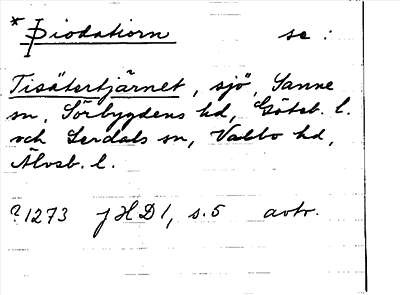 * Þiodatiorn se :
Tisätertjärnet, sjö, Sanne
sn, Sörbygdens hd, Göteb. l.
och Lerdals sn, Valbo hd,
Älvsb. l.
?1273 f HD 1, s. 5 avtr.